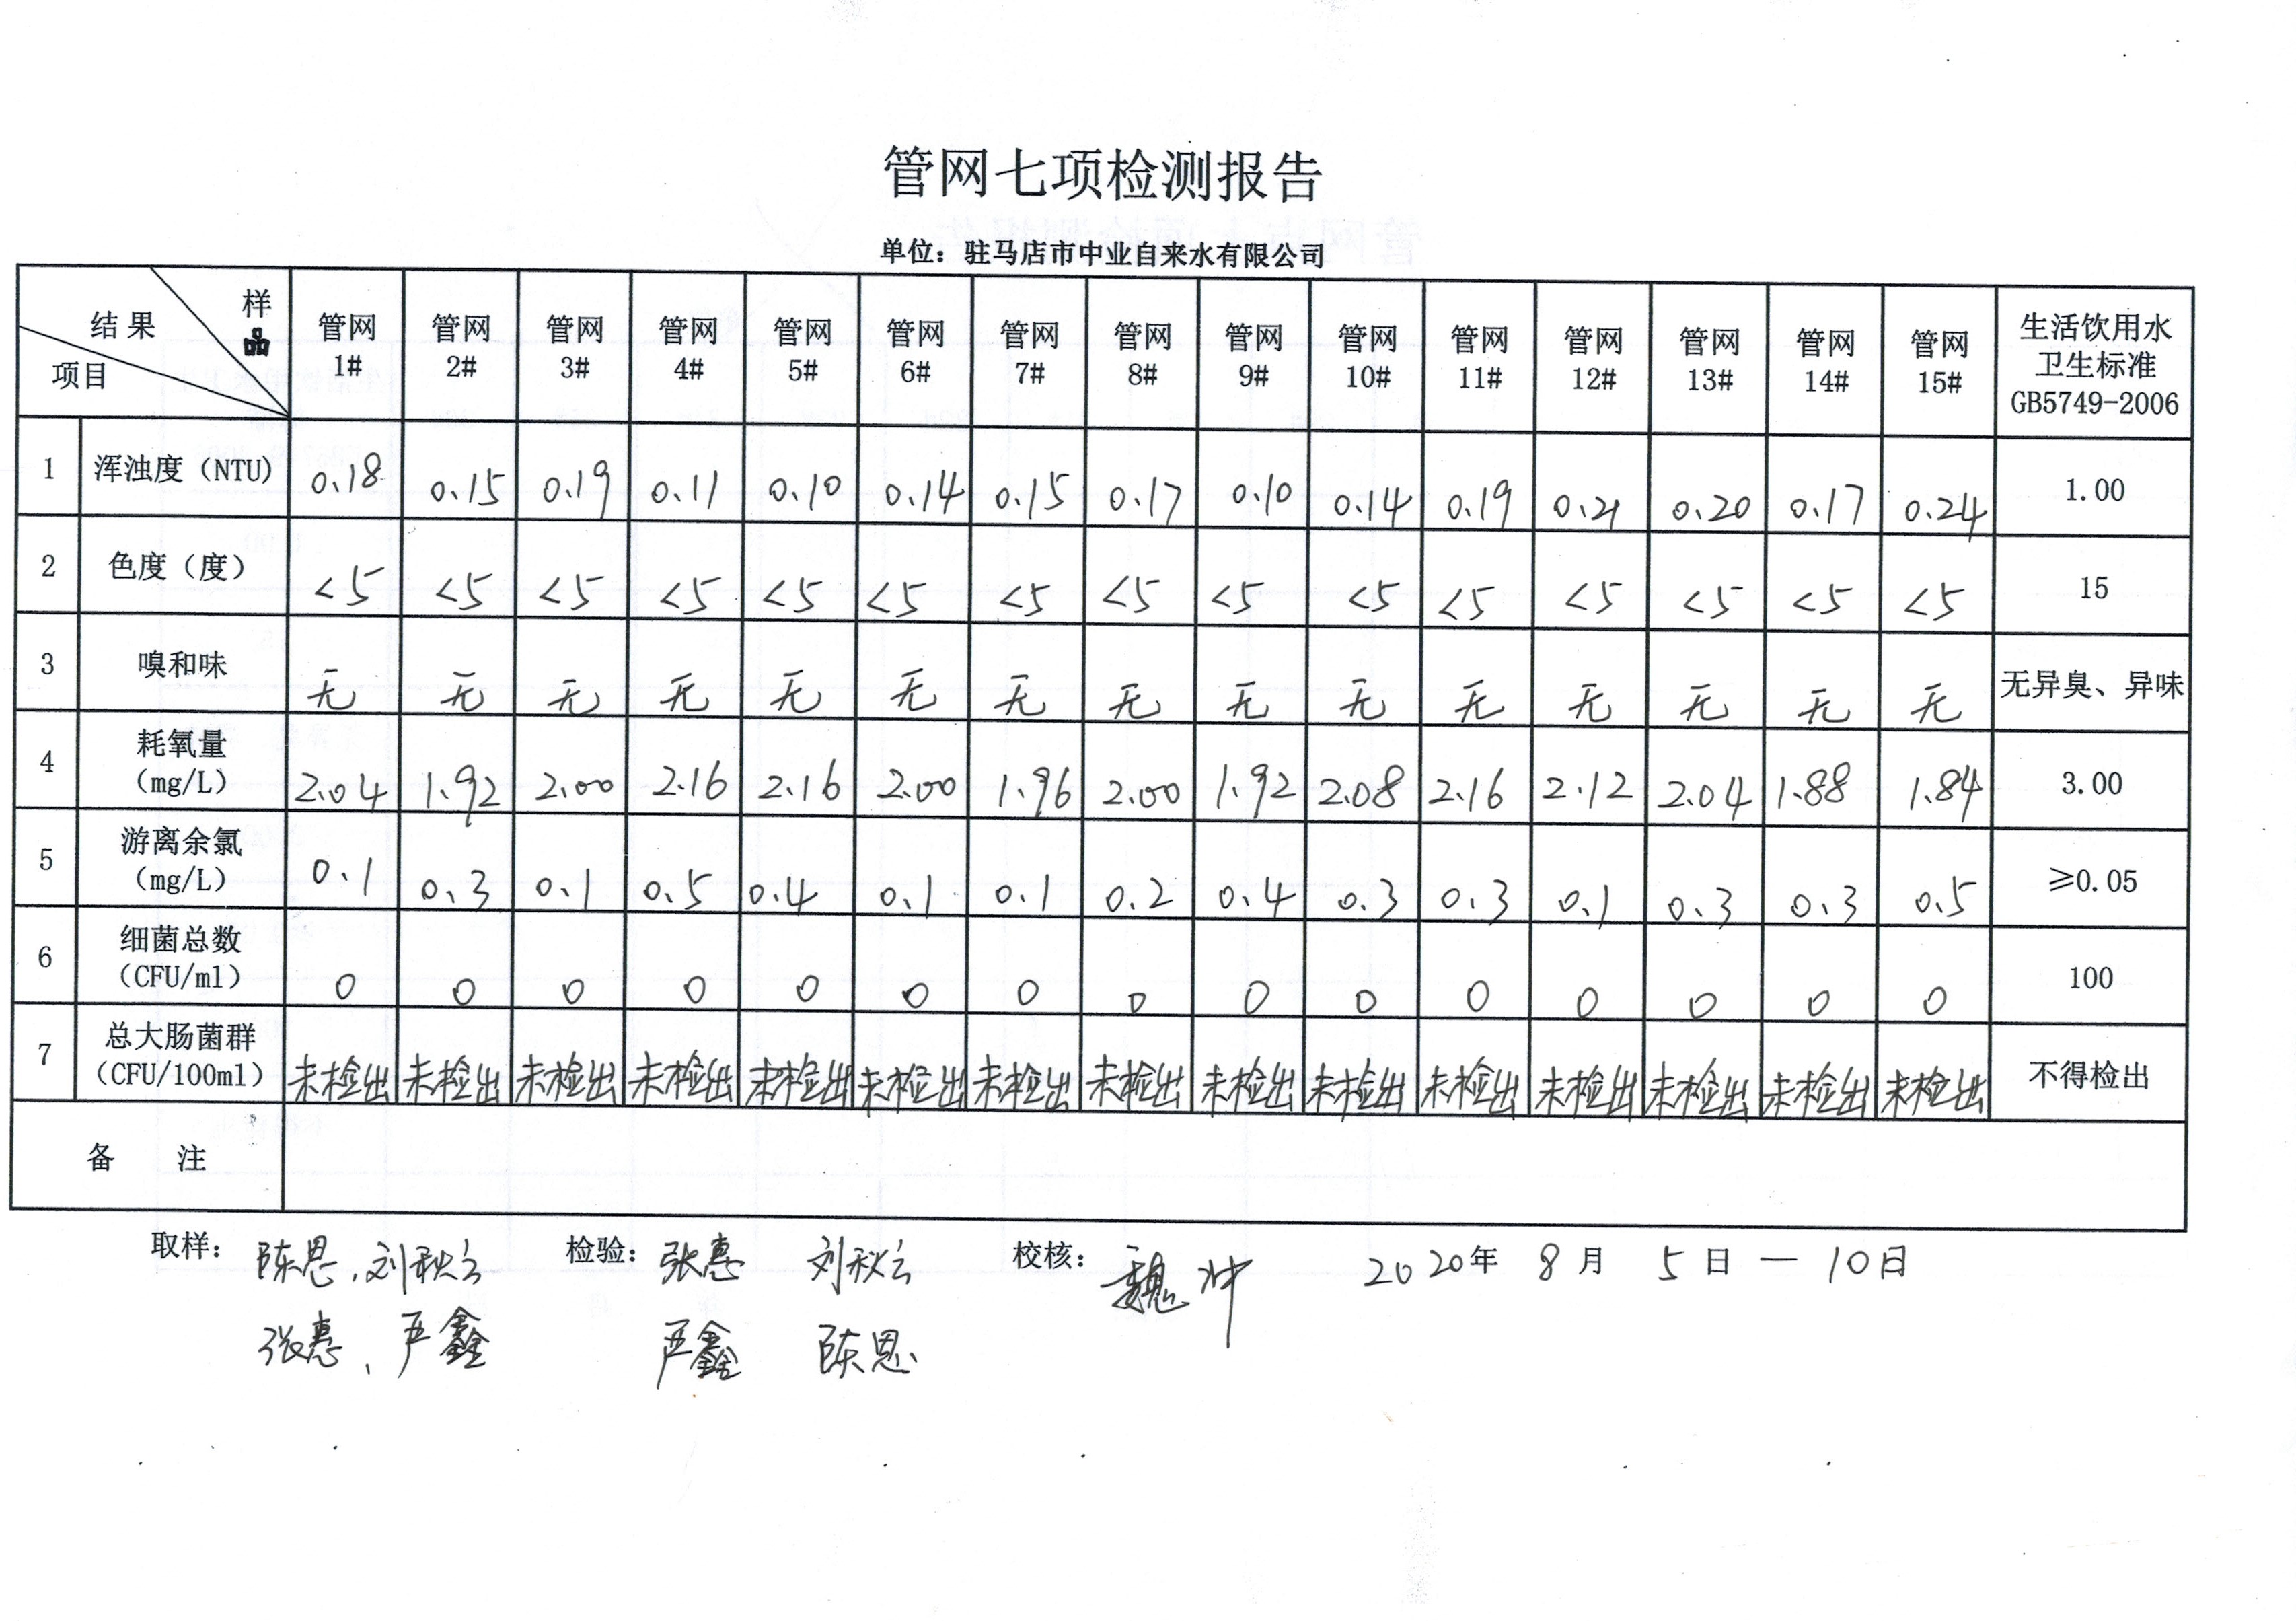 管网七项检测报告
单位：驻马店市中业自来水有限公司
样品 结果 项目 管网1# 管网2# 管网3# 管网4# 管网5# 管网6# 管网7# 管网8# 管网9# 管网10# 管网11# 管网12# 管网13# 管网14# 管网15# 生活饮用水卫生标准GB5749-2006
1 浑浊度（NTU） 0.18 0.15 0.19 0.11 0.10 0.14 0.15 0.17 0.10 0.14 0.19 0.21 0.20 0.17 0.24 1.00
2 色度（度） <5 <5 <5 <5 <5 <5 <5 <5 <5 <5 <5 <5 <5 <5 <5 15
3 嗅和味 无 无 无 无 无 无 无 无 无 无 无 无 无 无 无 无异臭、异味
4 耗氧量（mg/L） 2.04 1.92 2.00 2.16 2.16 2.00 1.96 2.00 1.92 2.08 2.16 2.12 2.04 1.88 1.84 3.00
5 游离余氯（mg/L） 0.1 0.3 0.1 0.5 0.4 0.1 0.1 0.2 0.4 0.3 0.3 0.1 0.3 0.3 0.5 ≥0.05
6 细菌总数（CFU/ml） 0 0 0 0 0 0 0 0 0 0 0 0 0 0 0 100
7 总大肠菌群（CFU/100ml） 未检出 未检出 未检出 未检出 未检出 未检出 未检出 未检出 未检出 未检出 未检出 未检出 未检出 未检出 未检出 不得检出
备 注
取样：陈恩、刘秋云 检验：张惠 刘秋云 校核：魏冲 2020年 8月 5日 — 10日
张惠、严鑫 严鑫 陈恩